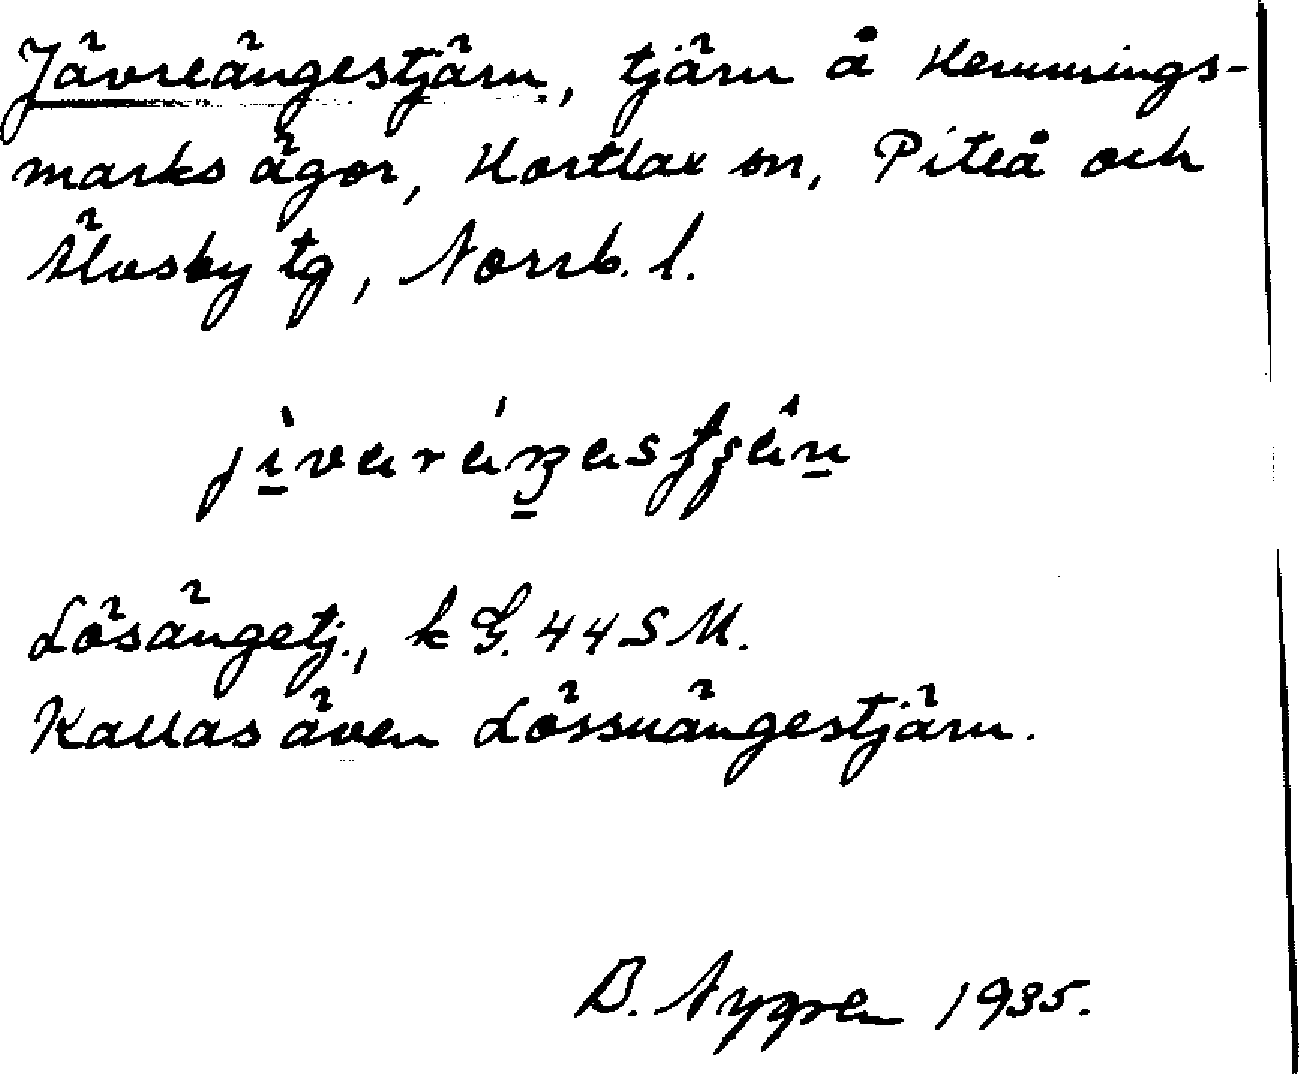 Jävreängestjärn, tjärn å Hemmings-
marks ägor, Hortlax sn, Piteå och
Älvsby tg, Norrb. l.
Lösängetj., k G. 44 S M.
Kallas även Lössuängestjärn.
B. Nygren 1935.